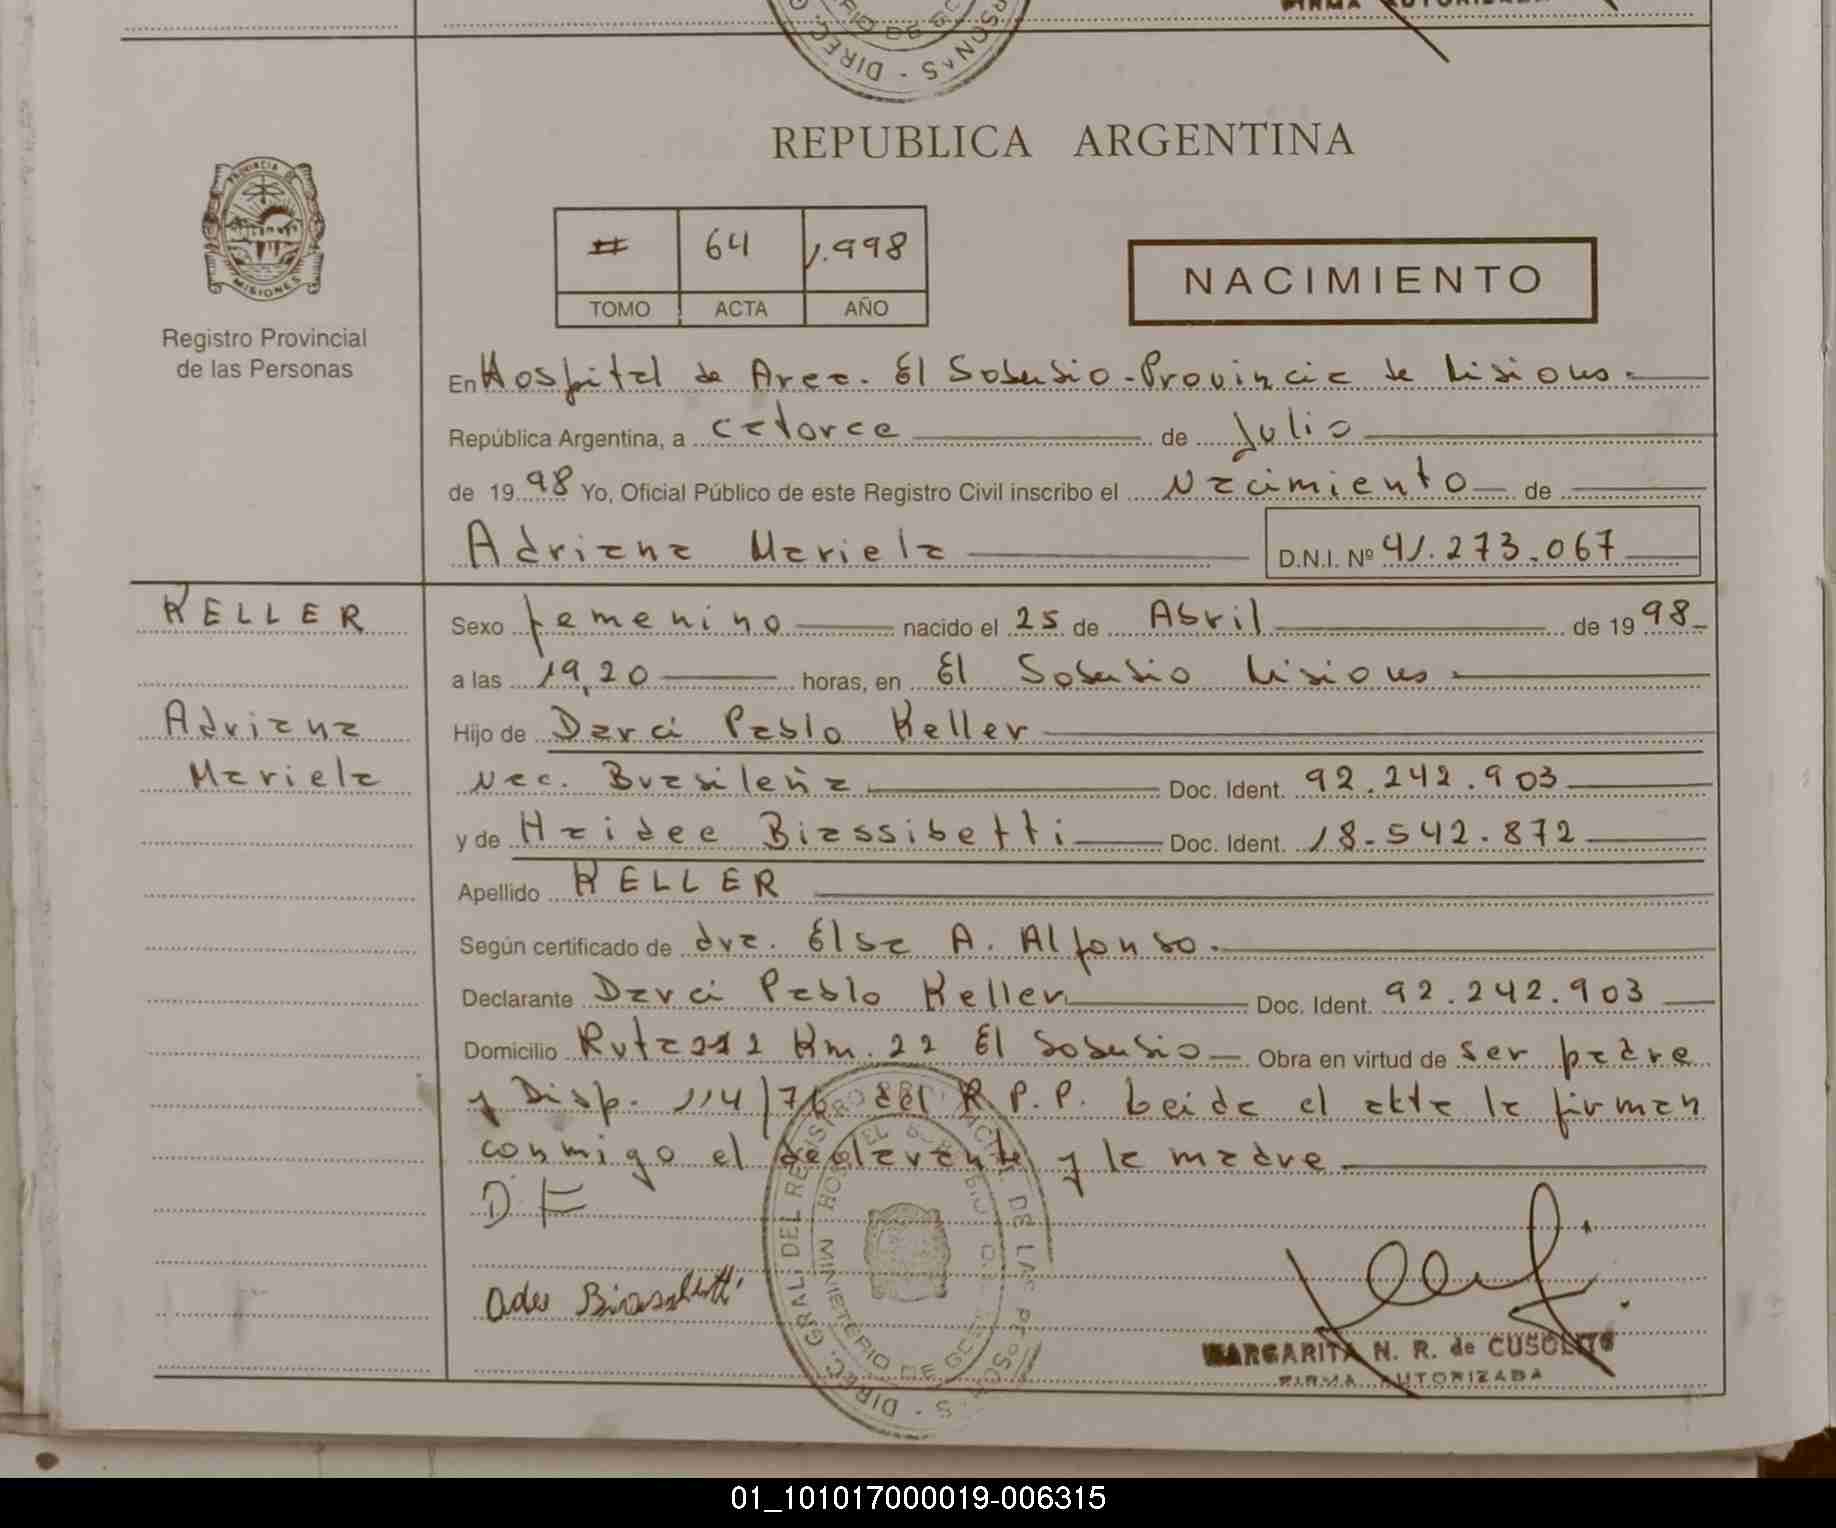 FIRMA AUTORIZADA
DIREC. SONAS
REPUBLICA ARGENTINA
PROVINCIA DE
MISIONES
Registro Provincial
de las Personas
# 64 1.998
TOMO ACTA AÑO
NACIMIENTO
En Hospital de Area. El Soberbio - Provincia de Misiones.
República Argentina, a catorce de Julio
de 1998 Yo, Oficial Público de este Registro Civil inscribo el Nacimiento de
Adriana Mariela D.N.I. Nº 41.273.067
KELLER
Sexo femenino nacido el 25 de Abril de 1998
a las 19,20 horas, en El Soberbio Misiones.
Adriana
Hijo de Darci Pablo Keller
Mariela
Nac. Brasileña Doc. Ident. 92.242.903
y de Haidee Biassibetti Doc. Ident. 18.542.872
Apellido KELLER
Según certificado de dra. Elsa A. Alfonso.
Declarante Darci Pablo Keller Doc. Ident. 92.242.903
Domicilio Ruta Km. 22 El Soberbio Obra en virtud de ser padre
y Disp. 114/76 del R.P.P. Leida el acta la firman
conmigo el declarante y la madre
D K
DIREC. GRAL. DEL REGISTRO DE LAS PERSONAS
MINISTERIO DE
MARGARITA N. R. de CUSOLITO
FIRMA AUTORIZADA
01_101017000019-006315